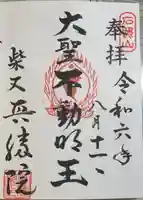 奉拝
令和六年
八月十一日
大聖不動明王
柴又